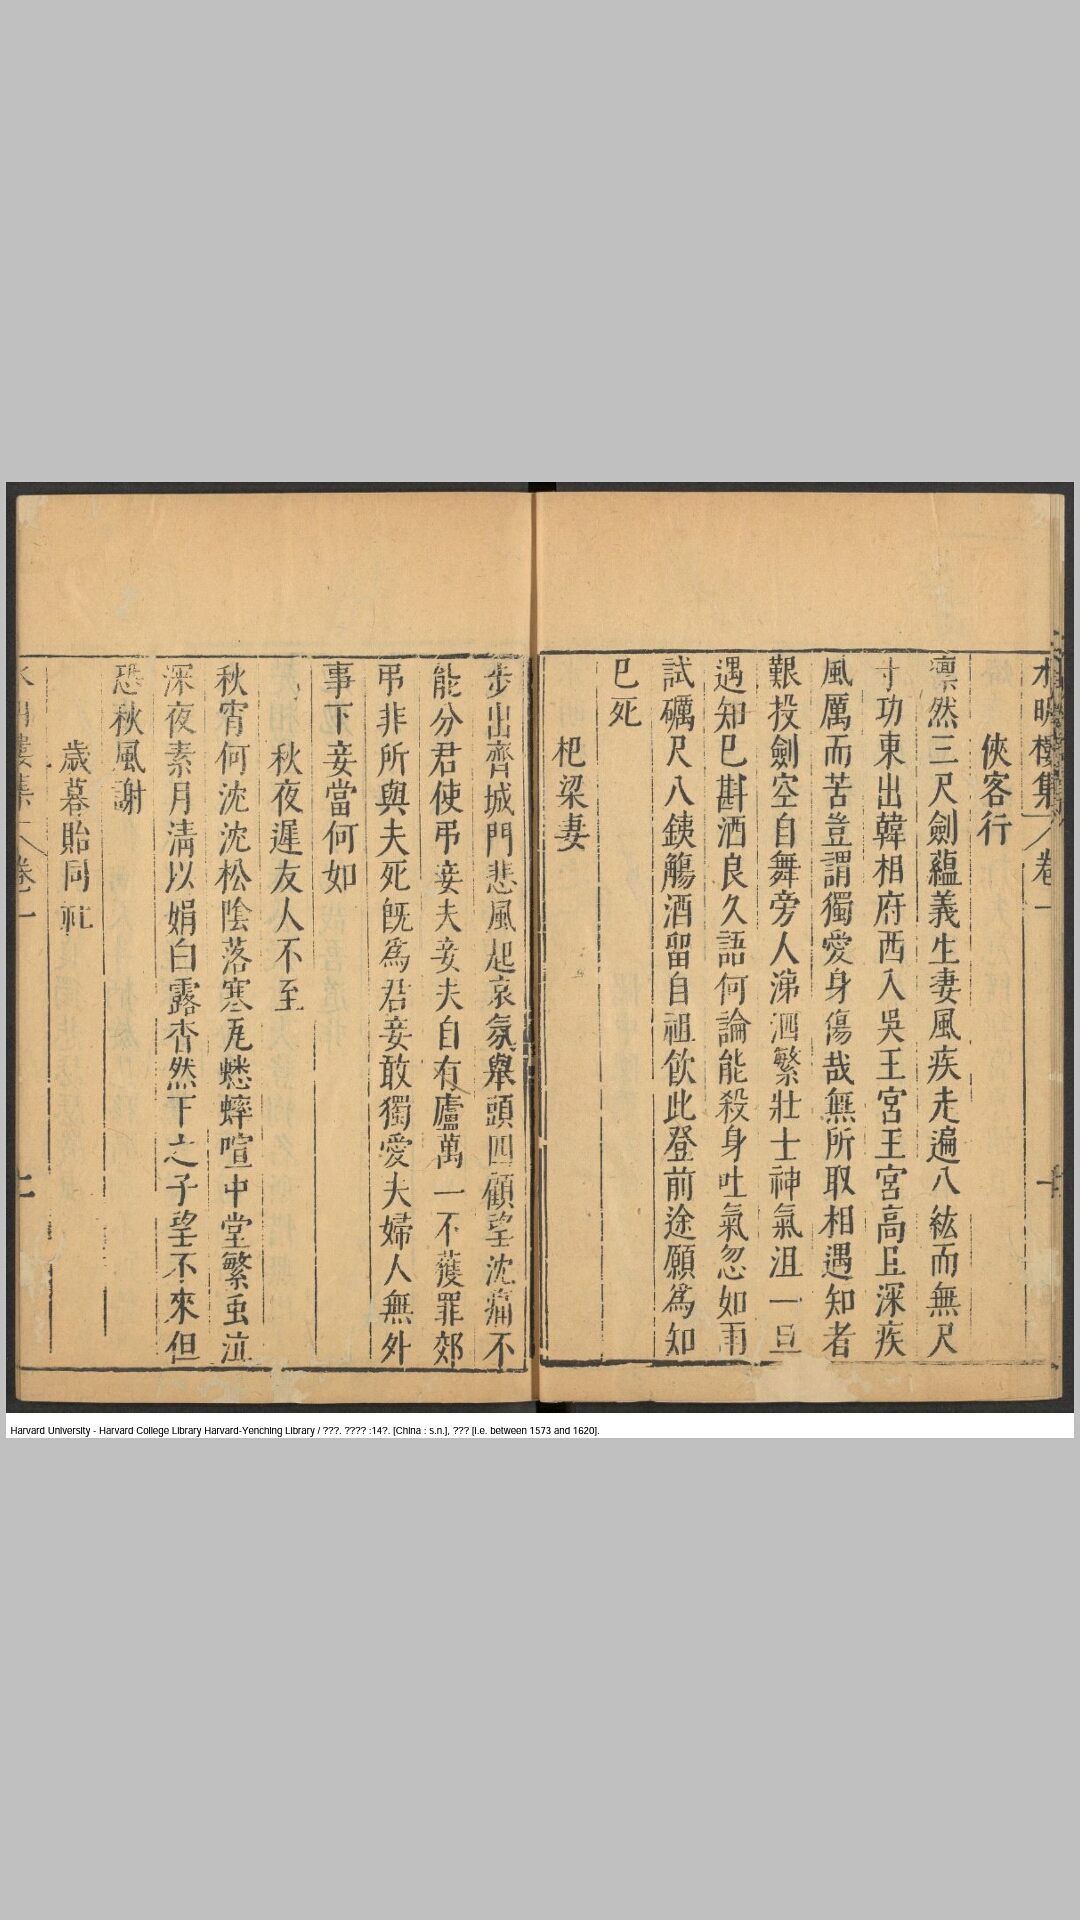 水明樓集 卷一 十
俠客行
凛然三尺劍蘊義生妻風疾走遍八紘而無尺
寸功東出韓相府西入吳王宮王宮高且深疾
風厲而苦豈謂獨愛身傷哉無所取相遇知者
艱投劍空自舞旁人涕泗繁壯士神氣沮一旦
遇知巳斟酒良久語何論能殺身吐氣忽如雨
試礪尺八鋏觴酒留自祖飲此登前途願爲知
巳死
杞梁妻
步出齊城門悲風起哀氛舉頭四顧望沈痛不
能分君使弔妾夫妾夫自有廬萬一不獲罪郊
弔非所與夫死既爲君妾敢獨愛夫婦人無外
事下妾當何如
秋夜遲友人不至
秋宵何沈沈松陰落寒瓦蟋蟀喧中堂繁虫泣
深夜素月清以娟白露杳然下之子望不來但
恐秋風謝
歲暮貽同社
樓集 卷一
Harvard University - Harvard College Library Harvard-Yenching Library / ???. ???? :14?. [China : s.n.], ??? [i.e. between 1573 and 1620].